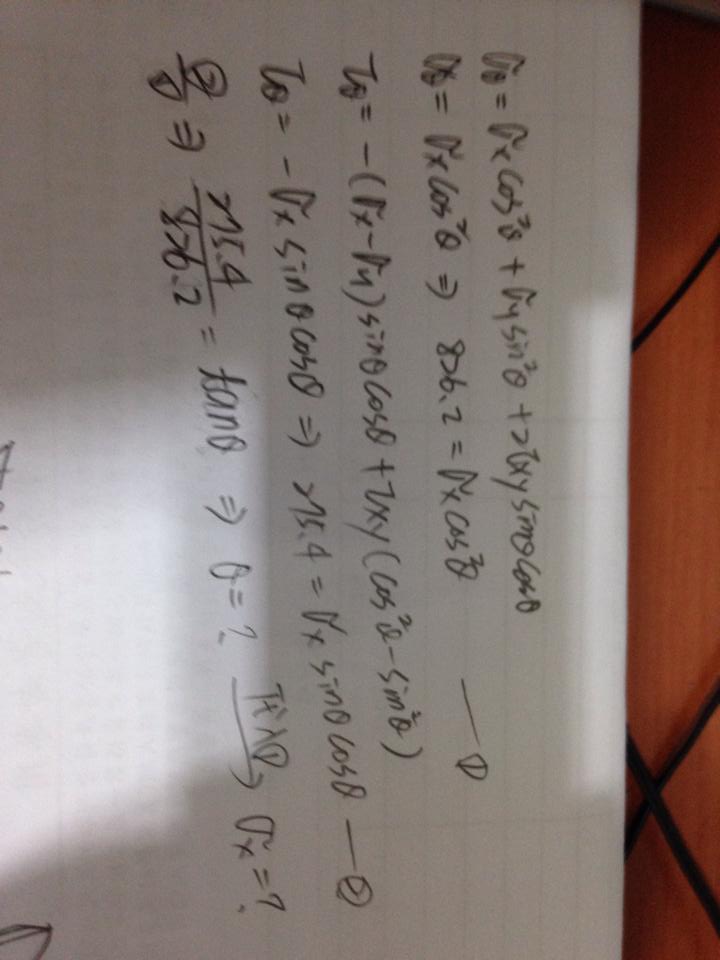 σθ = σx cos²θ + σy sin²θ + 2τxy sinθcosθ
σθ = σx cos²θ ⇒ 826.2 = σx cos²θ —①
τθ = -(σx-σy) sinθcosθ + τxy (cos²θ - sin²θ)
τθ = -σx sinθcosθ ⇒ 215.4 = σx sinθcosθ —②
②/① ⇒ 215.4/826.2 = tanθ ⇒ θ = ? 代入① → σx = ?